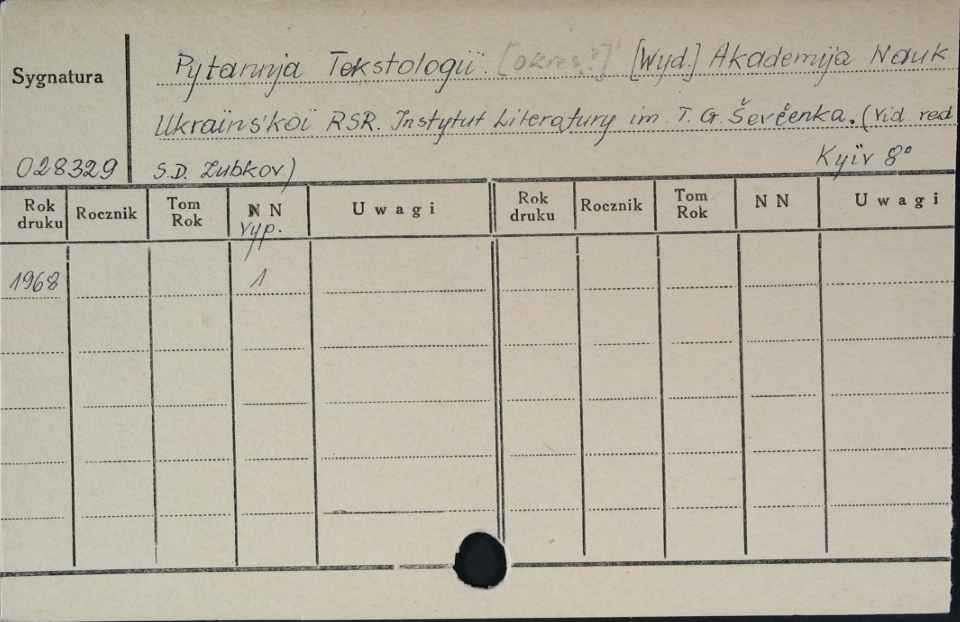 Sygnatura
Pytannja Tekstologiï. [okres?] [Wyd.] Akademija Nauk
Ukraïns'koï RSR. Instytut Literatury im. T. G. Ševčenka. (Vid red
028329 S.D. Zubkov) Kyïv 8°
Rok druku Rocznik Tom Rok N N Uwagi Rok druku Rocznik Tom Rok N N Uwagi
vyp.
1968 1